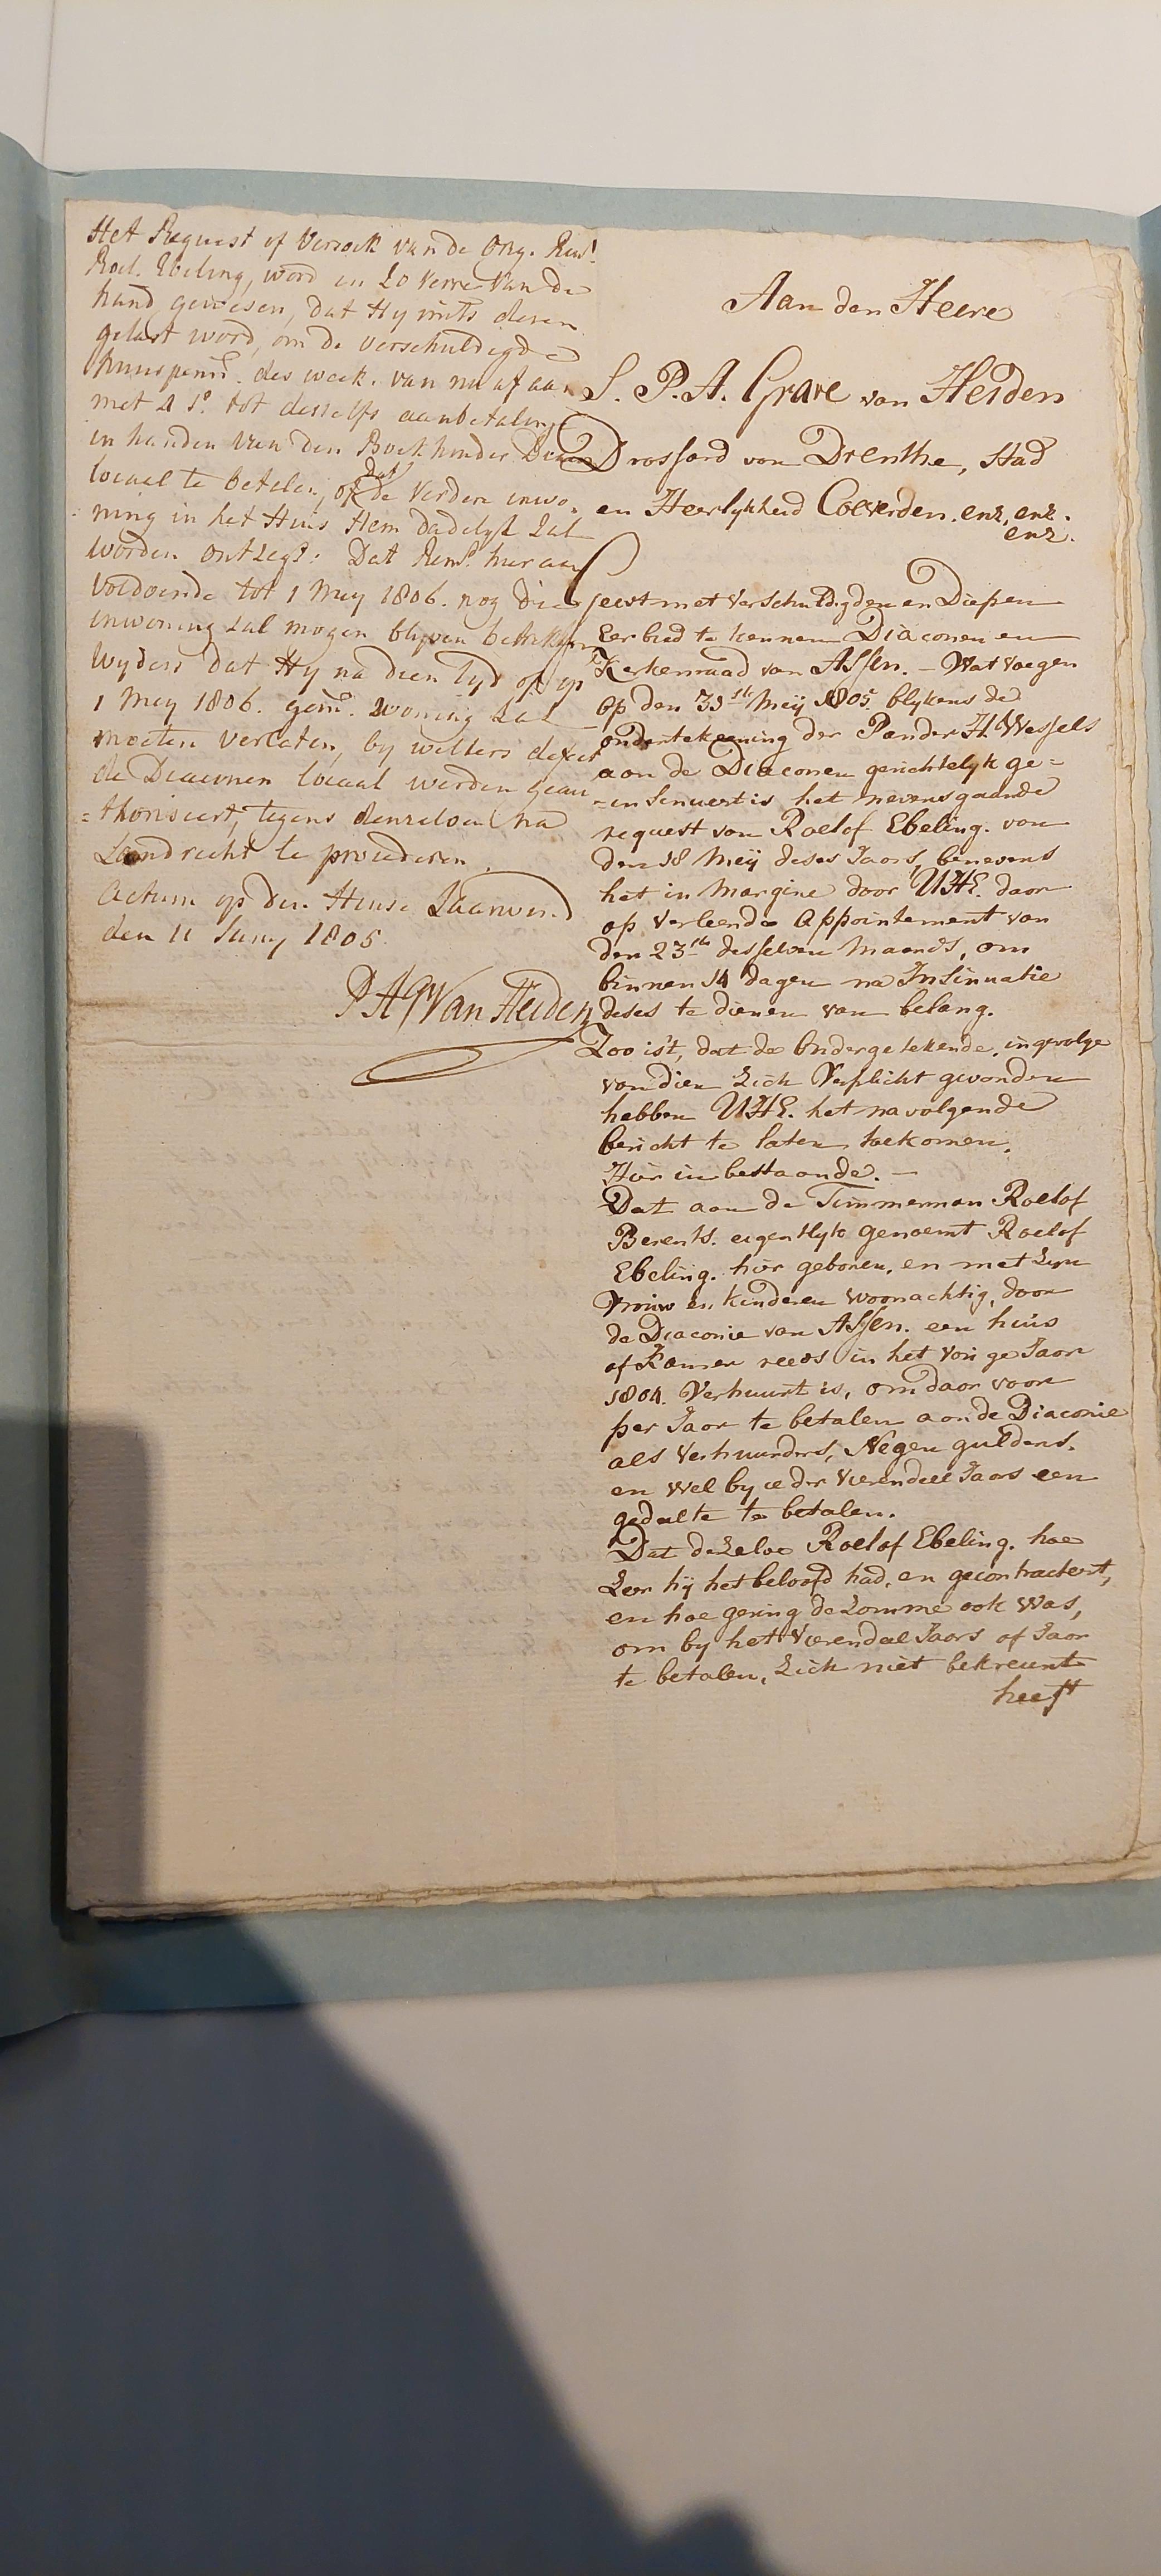 Het Request of Versoek van de Org. Rem.t
Roel. Ebeling, word in zo verre van de
hand gewesen, dat Hy mits desen
gelast word, om de verschuldigde
huurspenn. des week. van nu af aan
met 4 s.t tot desselfs aanbetaling
in handen van den Boekhouder Diacon
locaal te betalen, of dat de verdere inwo-
ning in het Huis Hem dadelyk zal
worden ontzegt: Dat Rem.t hier aan
voldoende tot 1 Mey 1806. nog die
inwoning zal mogen blyven betrekken
Wyders dat Hy na dien tyd of op
1 Mey 1806. gem. woning zal
moeten verlaten, by welkers defect
de Diaconen locaal werden geau-
=thoriseert, tegens denzelven na
Landrecht te procederen.
Actum op den Huise Laarwoud
den 11 Juny 1805.
PAGVan Heiden
Aan den Heere
S. P. A. Grave van Heiden
Drossard van Drenthe, Stad
en Heerlykheid Coeverden. enz. enz.
enz.
Geeft met verschuldigden en Diepen
Eerbied te kennen Diaconen en
Kerkenraad van Assen. – Wat voegen
op den 31st Meij 1805. blykens de
ondertekening der Pander H. Wessels
aan de Diaconen gerichtelyk ge=
=insinueert is het nevensgaande
request van Roelof Ebeling. van
den 18 Meij deses Jaars, benevens
het in Margine door UHE. daar
op verleende appointement van
den 23ste desselven Maands, om
binnen 14 dagen na Insinuatie
deses te dienen van belang.
Zoo is't, dat de Ondergetekende, ingevolge
van dien zich Verplicht gevonden
hebben UHE. het navolgende
bericht te laten toekomen.
Hier in bestaande. –
Dat aan de Timmerman Roelof
Berents. eigentlyk genoemt Roelof
Ebeling. hier geboren, en met zyn
Vrouw en kinderen woonachtig, door
de Diaconie van Assen. een huis
of Kamer reeds in het vorige Jaar
1804. Verhuurt is, om daar voor
per Jaar te betalen aan de Diaconie
als Verhuurders, Negen guldens.
en wel by ieder vierendeel Jaars een
gedeelte te betalen.
Dat dezelve Roelof Ebeling. hoe
zeer hij het beloofd had, en gecontracteert,
en hoe gering de Somme ook was,
om by het vierendeel Jaars of Jaar
te betalen, zich niet bekreunt
heeft